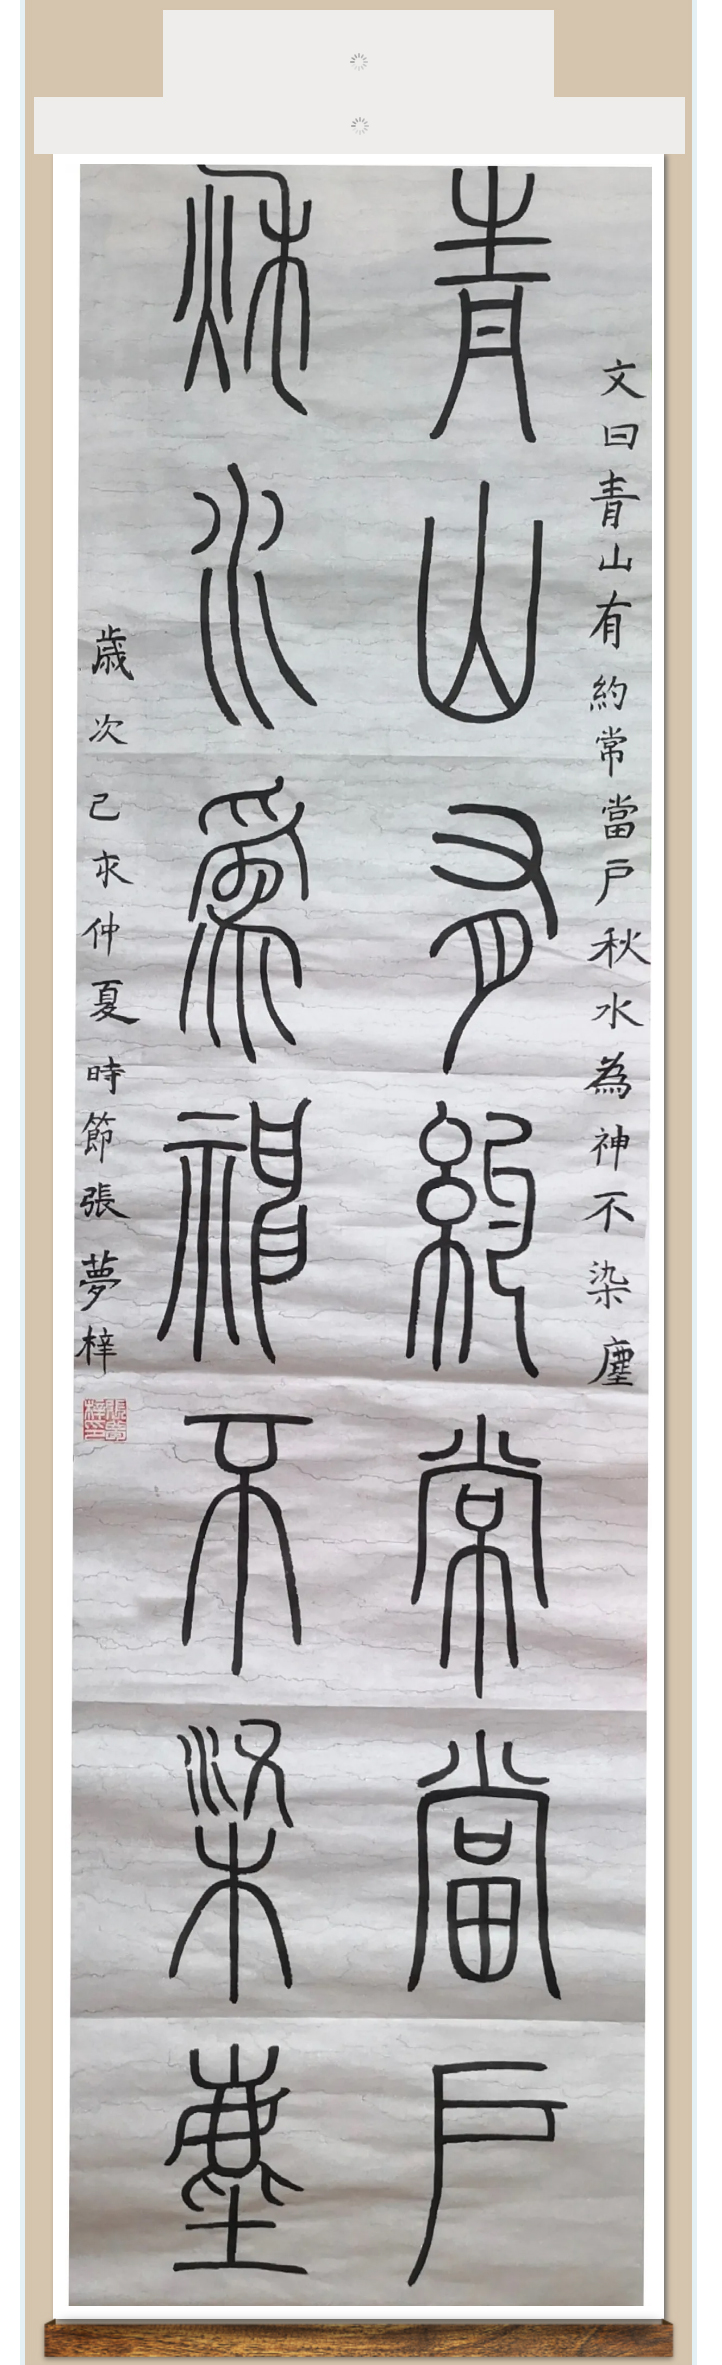 文曰青山有約常當戶秋水為神不染塵
青山有約常當戶
秋水為神不染塵
歳次己亥仲夏時節張夢梓
張夢梓印